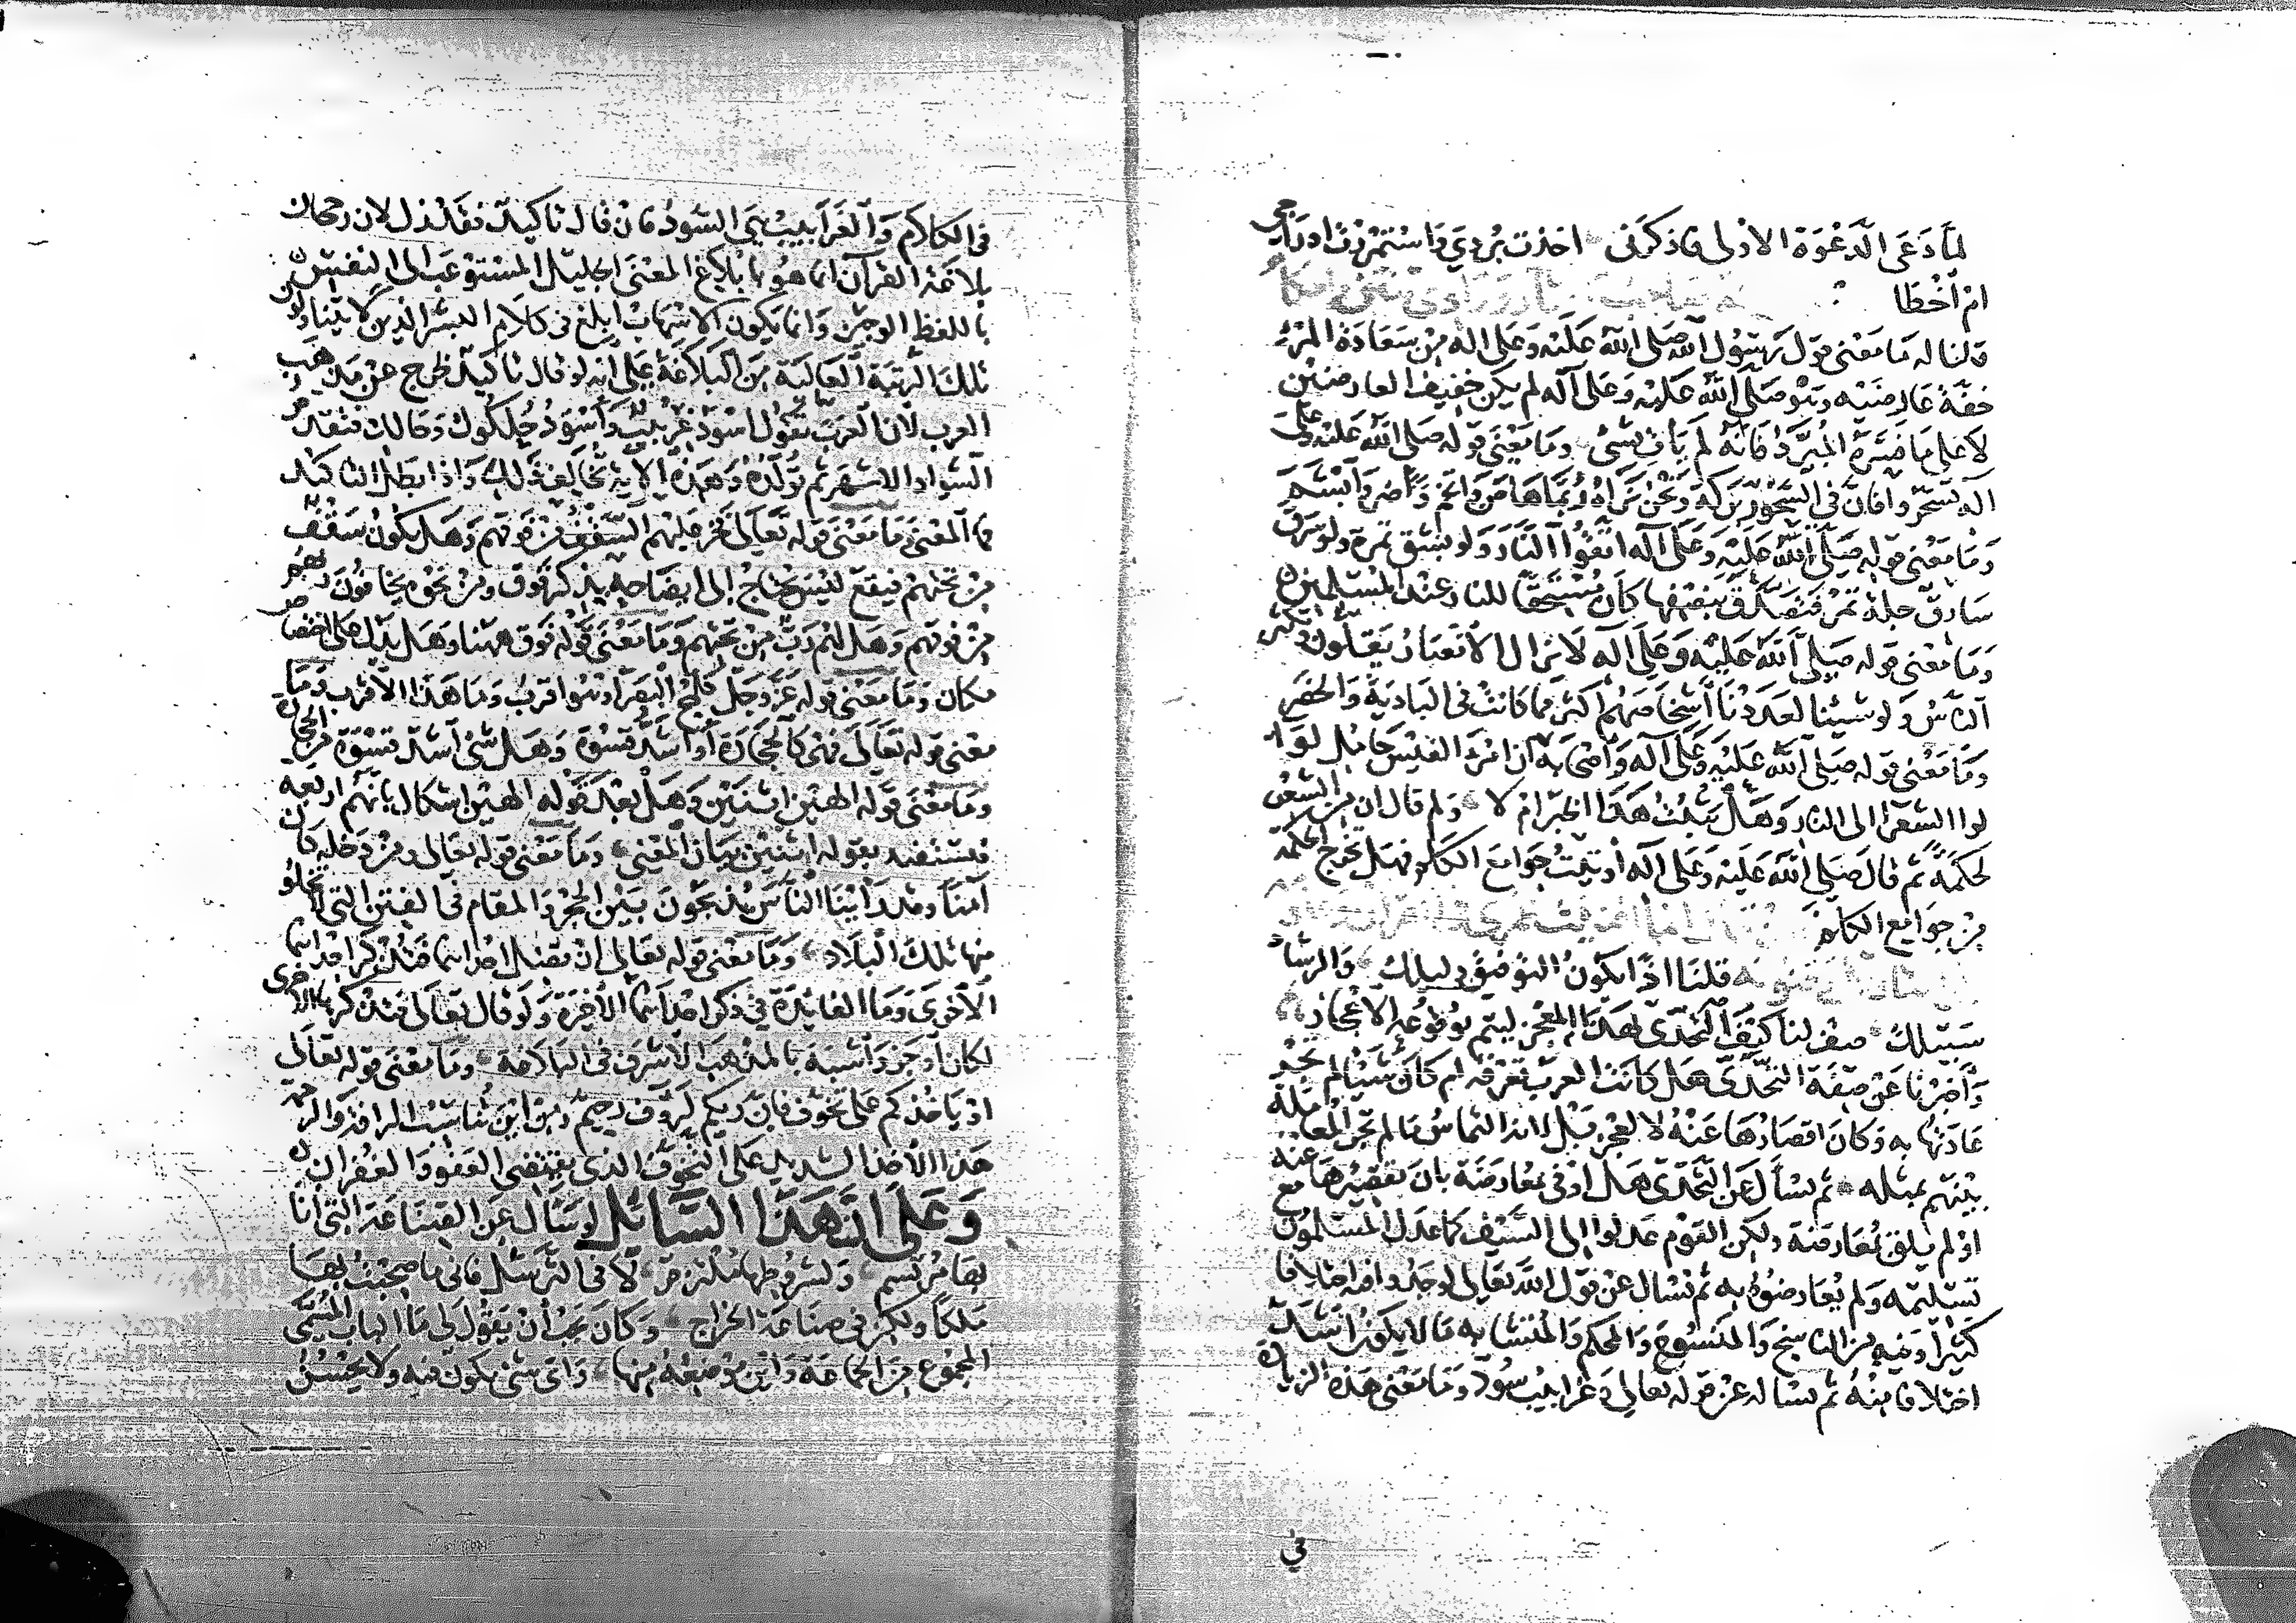 لما دعى الدعوة الاولى فاذكرنى اخذت بردي واستمررت ادراجى
ام اخطا
قلنا له ما معنى قول رسول الله صلى الله عليه وعلى اله من سعادة المرء
خفة عارضيه وهو صلى الله عليه وعلى آله لم يكن خفيف العارضين
لا على ما فسره المبرد فانه لم يأت بشئ وما معنى قوله صلى الله عليه وعلى
اله تسحروا فان في السحور بركة ونحن نراه ربما هاض واتخم وأضر وأبشم
وما معنى قوله صلى الله عليه وعلى آله اتقوا النار ولو بشق تمرة ولو سرق
سارق جلة تمر فتصدق بنصفها كان مستحقا للنار عند المسلمين
وما معنى قوله صلى الله عليه وعلى آله لا تزال الانصار يقلون وتكثر
الناس ولو شيئنا لعددنا أشخاصهم اكثر مما كانت في البادية والحضر
وما معنى قوله صلى الله عليه وعلى آله وأصحابه ان امرؤ القيس حامل لواء
لوا الشعرا الى النار وهل يثبت هذا الخبر ام لا ولم قال ان من الشعر
لحكمة ثم قال صلى الله عليه وعلى آله أوتيت جوامع الكلم فهل تخرج الحكمة
من جوامع الكلم
قلنا اذا يكون التوفيق دليلك والرشاد
سبيلك صف لنا كيف التحدى لهذا المعجز ليتم بوقوعه الاعجاز
وأخبرنا عن صفة التحدى هل كانت العرب تعرفه ام كان شيئا لم تجر
عادتها به وكان اقصارها عنه لا لعجز قبل انه التماس ما لم تجر المعاملة
بينهم بمثله ثم نسأل عن التحدى هل اوفى بمعارضة بان تقصيرها عنه
او لم يلق بمعارضة ولكن القوم عدلوا الى السيف كما عدل المسلمون مع
تسليمه ولم يعارضوه به ثم نسال عن قول الله تعالى لوجدوا فيه اختلافا
كثيرا وفيه من الناسخ والمنسوخ والمحكم والمتشابه ما لا يكون اشد
اختلافا منه ثم نساله عن قوله تعالى وغرابيب سود وما معنى هذه الزيادة
في
فى الكلام والغرابيب هى السود فان قال تاكيد فقد زل لان رجحان
بلاغة القرآن انما هو بابلاغ المعنى الجليل المستوعب الى النفس
باللفظ الوجيز وانما يكون الاسهاب ابلغ فى كلام البشر الذين لا يتناولون
تلك الرتبة العالية من البلاغة على انه لو قال تاكيد لخرج عن مذهب
العرب لان العرب تقول اسود غربيب وأسود حلكوك وحالك فتقدم
السواد الاشهر ثم تؤكده وهذه الآية تخالف ذلك واذا بطل التاكيد
فما المعنى وما معنى قوله تعالى فخر عليهم السقف من فوقهم وهل يكون سقف
من تحتهم فيقع لبس يحتاج إلى ايضاحه بذكر فوق ومن نحو يخافون ربهم
من فوقهم وهل لهم رب من تحتهم وما معنى قوله فوق ههنا وهل يدل على اختصاص
مكان وما معنى قوله عز وجل كلمح البصر او هو اقرب وما هذا الاقرب وما
معنى قوله تعالى فهى كالحجارة أو أشد قسوة وهل شئ أشد قسوة من الحجارة
وما معنى قوله الهين اثنين وهل بعد قوله الهين اشكال بانهم اربعة
فيستفيد بقوله اثنين بيان المعنى وما معنى قوله تعالى ومن دخله كان
آمنا وقد رأينا الناس يذبحون بين الحجر والمقام في الفتن التى لا تخلو
منها تلك البلاد وما معنى قوله تعالى ان تضل احداهما فتذكر احداهما
الاخرى وما الفايدة في ذكر احداهما الأخيرة ولو قال تعالى فتذكرها الاخرى
لكان أوجز وأشبه بالمذهب الاشرف فى البلاغة وما معنى قوله تعالى
او ياخذكم على تخوف فان ربكم لرؤف رحيم ومن اين تناسبت الرافة والرحمة
هذا الاخذ الشديد على التخوف الذى يقتضى العفو والغفران
وعلى ان هذا السائل لو سأل عن الصناعة التى انا
بها مرتسم ولشروطها ملتزم لا فى الترسل فانى ما صحبت بها
ملكا ولكن فى صناعة الخراج وكان يجب أن يقول لى ما الباب المسمى
المجموع من الجماعة واين موضعه منها واى شئ يكون فيه ولا يحسن